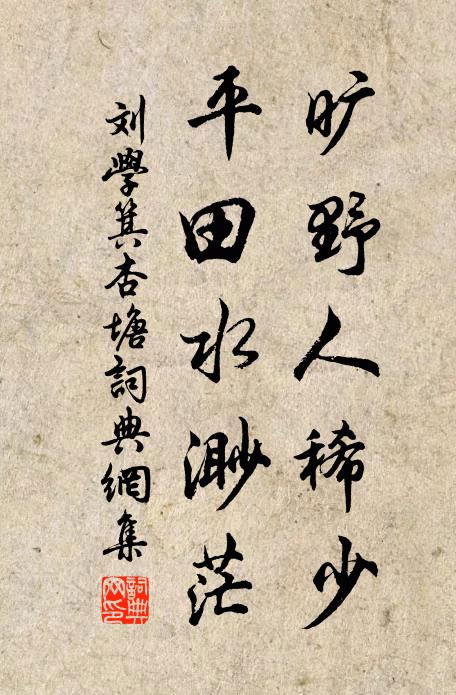 旷野人稀少
平田水渺茫
刘學箕杏塘詞典網集
詞典网印